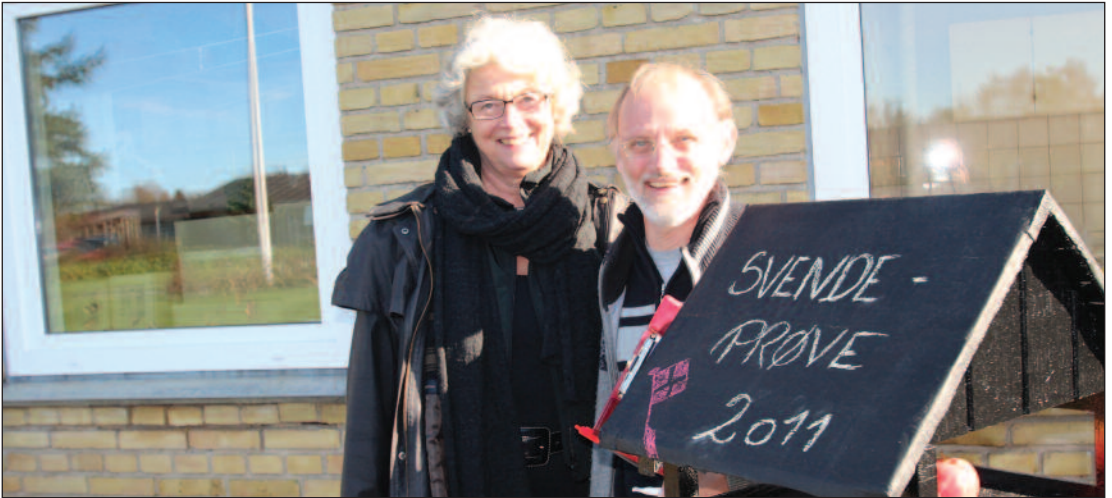 SVENDE-
PRØVE
2011